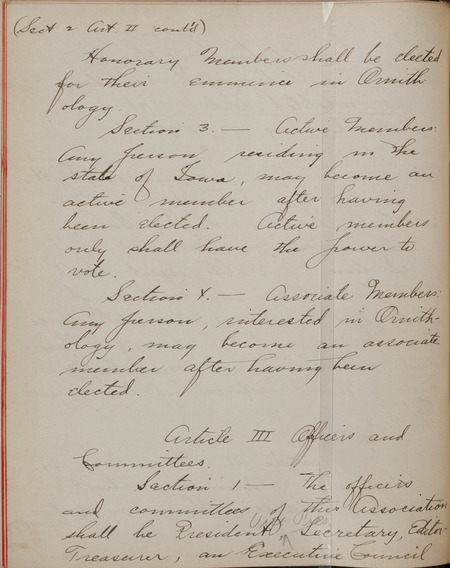 (Sect 2 Art. II cont'd)
Honorary Members shall be elected
for their eminence in Ornith-
ology.
Section 3. — Active Members:
Any person residing in the
state of Iowa, may become an
active member after having
been elected. Active members
only shall have the power to
vote.
Section 4. — Associate Members:
Any person, interested in Ornith-
ology, may become an associate
member after having been
elected.
Article III Officers and
Committees.
Section 1 — The officers
and committees of this Association
Vice Pres
shall be President, Secretary, Editor
Treasurer, an Executive Council